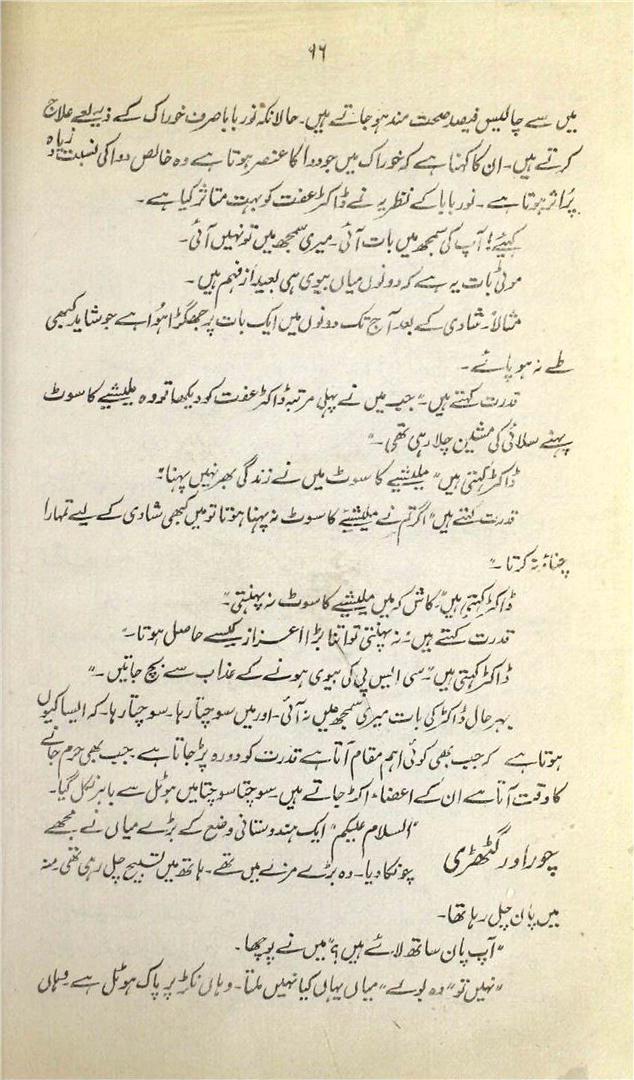 ۹۶
میں سے چالیس فیصد صحت مند ہو جاتے ہیں۔ حالانکہ نور بابا صرف خوراک کے ذریعے علاج
کرتے ہیں۔ ان کا کہنا ہے کہ خوراک میں جو دوا کا عنصر ہوتا ہے وہ خالص دوا کی نسبت زیادہ
پُر اثر ہوتا ہے۔ نور بابا کے نظریہ نے ڈاکٹر عفت کو بہت متاثر کیا ہے۔
کہیئے! آپ کی سمجھ میں بات آئی۔ میری سمجھ میں تو نہیں آئی۔
موٹی بات یہ ہے کہ دونوں میاں بیوی ہی بعید از فہم ہیں۔
مثالاً۔ شادی کے بعد آج تک دونوں میں ایک بات پر جھگڑا ہُوا ہے جو شاید کبھی
طے نہ ہو پائے۔
قدرت کہتے ہیں۔ "جب میں نے پہلی مرتبہ ڈاکٹر عفت کو دیکھا تو وہ ملیشیے کا سوٹ
پہنے سلائی کی مشین چلا رہی تھی۔"
ڈاکٹر کہتی ہیں "ملیشیے کا سوٹ میں نے زندگی بھر نہیں پہنا"۔
قدرت کہتے ہیں "اگر تم نے ملیشیے کا سوٹ نہ پہنا ہوتا تو میں کبھی شادی کے لیے تمہارا
چناؤ نہ کرتا۔"
ڈاکٹر کہتی ہیں "کاش کہ میں ملیشیے کا سوٹ نہ پہنتی۔"
قدرت کہتے ہیں: نہ پہنتی تو اتنا بڑا اعزاز کیسے حاصل ہوتا۔"
ڈاکٹر کہتی ہیں "سی ایس پی کی بیوی ہونے کے عذاب سے بچ جاتیں۔"
بہر حال ڈاکٹر کی بات میری سمجھ میں نہ آئی۔ اور میں سوچتا رہا۔ سوچتا رہا۔ کہ ایسا کیوں
ہوتا ہے کہ جب بھی کوئی اہم مقام آتا ہے قدرت کو دورہ پڑ جاتا ہے۔ جب بھی حرم جانے
کا وقت آتا ہے ان کے اعضاء اکڑ جاتے ہیں۔ سوچتا سوچتا میں ہوٹل سے باہر نکل گیا۔
چور اور گٹھڑی
"السلام علیکم" ایک ہندوستانی وضع کے بڑے میاں نے مجھے
چونکا دیا۔ وہ بڑے مزے میں تھے۔ ہاتھ میں تسبیح چل رہی تھی۔ منہ
میں پان چل رہا تھا۔
"آپ پان ساتھ لائے ہیں؟" میں نے پوچھا۔
"نہیں تو" وہ بولے "میاں یہاں کیا نہیں ملتا۔ وہاں نکڑ پر پاک ہوٹل ہے وہاں